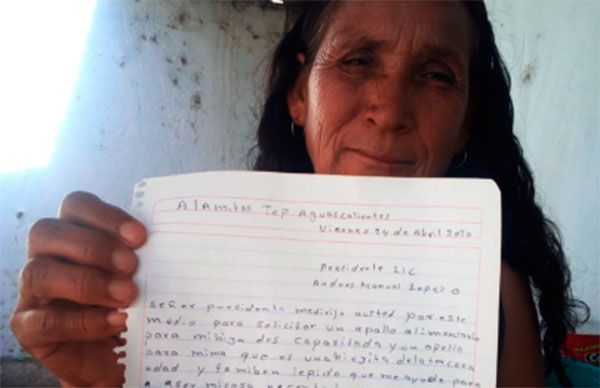 Alamitos Tep Aguascalientes
Viernes 24 de Abril 2020
Presidente LIC
Andres Manuel Lopez O
señor precidente medirijo austed por este
medio para solicitar un apollo alimentario
para mihija dos capasilada y un apollo
para mima que es unabiegita delatercera
edad y tambien lepido que meayude para
a aser micasa